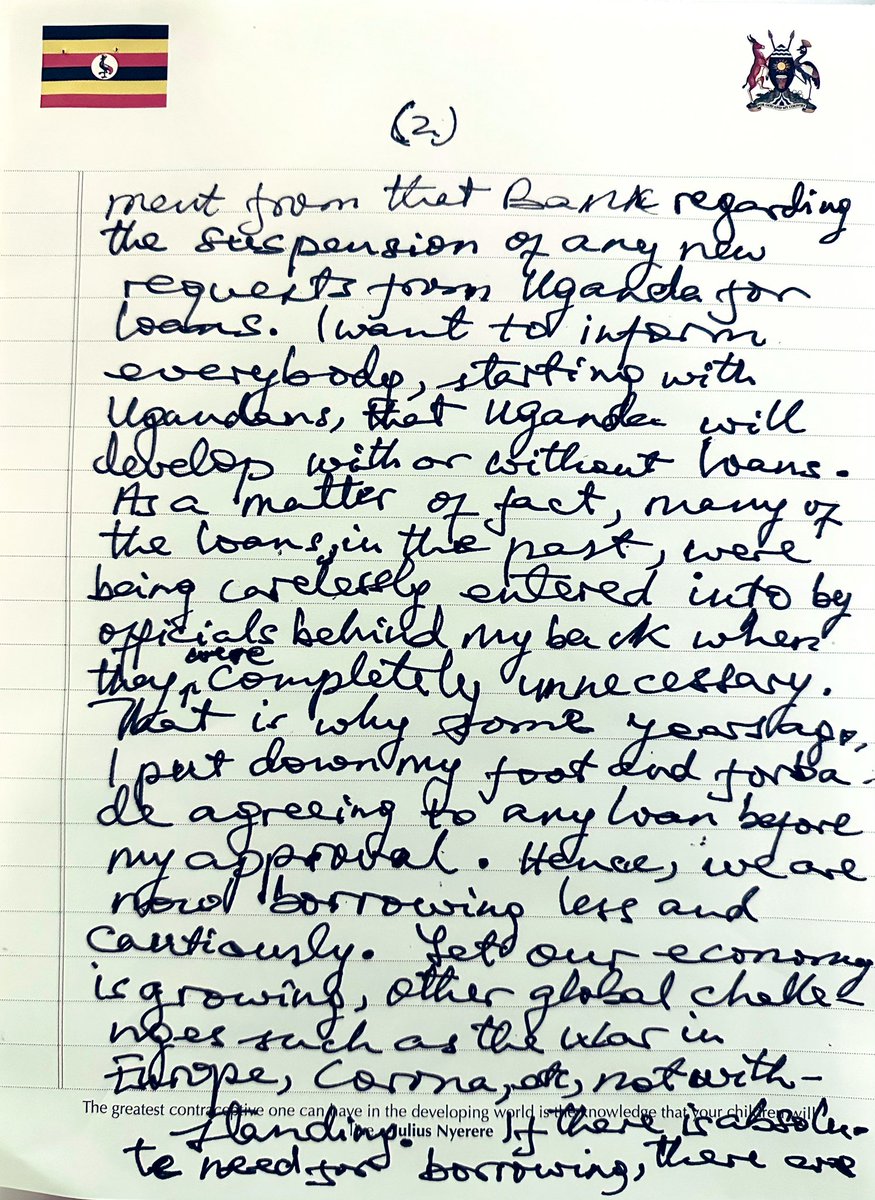 (2)
ment from that Bank regarding
the suspension of any new
requests from Uganda for
loans. I want to inform
everybody, starting with
Ugandans, that Uganda will
develop with or without loans.
As a matter of fact, many of
the loans, in the past, were
being carelessly entered into by
officials behind my back when
were
they completely unnecessary.
That is why some years ago,
I put down my foot and forba-
de agreeing to any loan before
my approval. Hence, we are
now borrowing less and
cautiously. Yet our economy
is growing, other global challe-
nges such as the war in
Europe, Corona, etc, not with-
The greatest contraceptive one can have in the developing world is the knowledge that your children will
live. Julius Nyerere
standing. If there is absolu-
te need for borrowing, there are